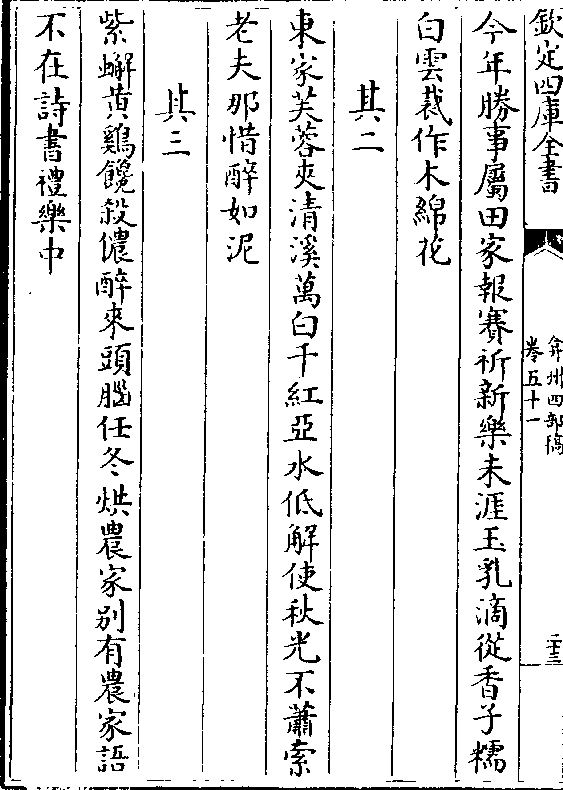 欽定四庫全書
弇州四部稿
卷五十一
二十三
今年勝事屬田家報賽祈新樂未涯玉乳滴從香子糯
白雲裁作木綿花
其二
東家芙蓉夾清溪萬白千紅亞水低解使秋光不蕭索
老夫那惜醉如泥
其三
紫蠏黄鷄饞殺儂醉來頭腦任冬烘農家别有農家語
不在詩書禮樂中